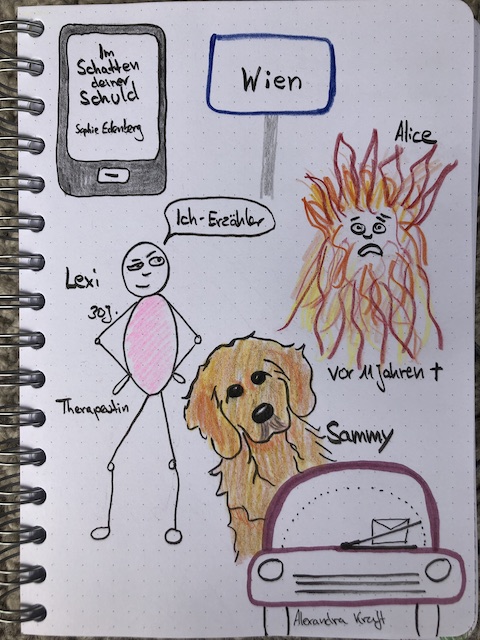 Im
Schatten
deiner
Schuld
Sophie Edenberg
Wien
Alice
Ich-Erzähler
Lexi
30J.
vor 11 Jahren †
Therapeutin
Sammy
Alexandra Kraft